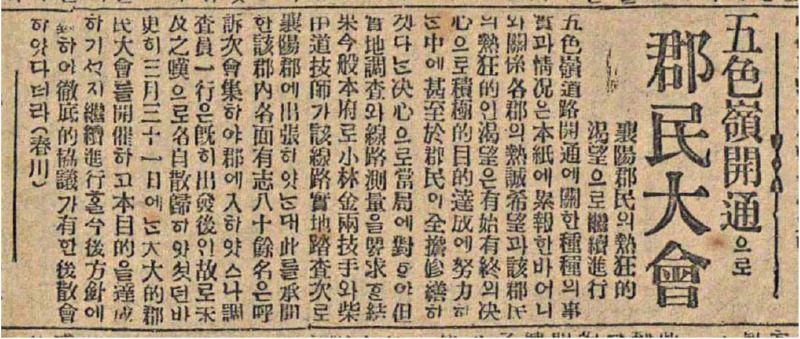 五色嶺開通으로
郡民大會
襄陽郡民의熱狂的
渴望으로繼續進行
五色嶺道路開通에關한種種의事
實과情况은本紙에累報한바어니
와關係各郡의熱誠希望과該郡民
의熱狂的인渴望은有始有終의决
心으로積極的目的達成에努力하
는中에甚至於郡民이全擔修繕하
겟다는决心으로當局에對하야但
實地調査와線路測量을要求한結
果今般本府로小林金兩技手와柴
田道技師가該線路實地踏査次로
襄陽郡에出張하얏는대此를承聞
한該郡內各面有志八十餘名은呼
訴次會集하야郡에入하얏스나調
査員一行은旣히出發後인故로未
及之嘆으로各自散歸하얏섯던바
更히三月三十一日에는大大的郡
民大會를開催하고本目的을達成
하기지繼續進行할今後方針에
對하야徹底的協議가有한後散會
하얏다더라(春川)